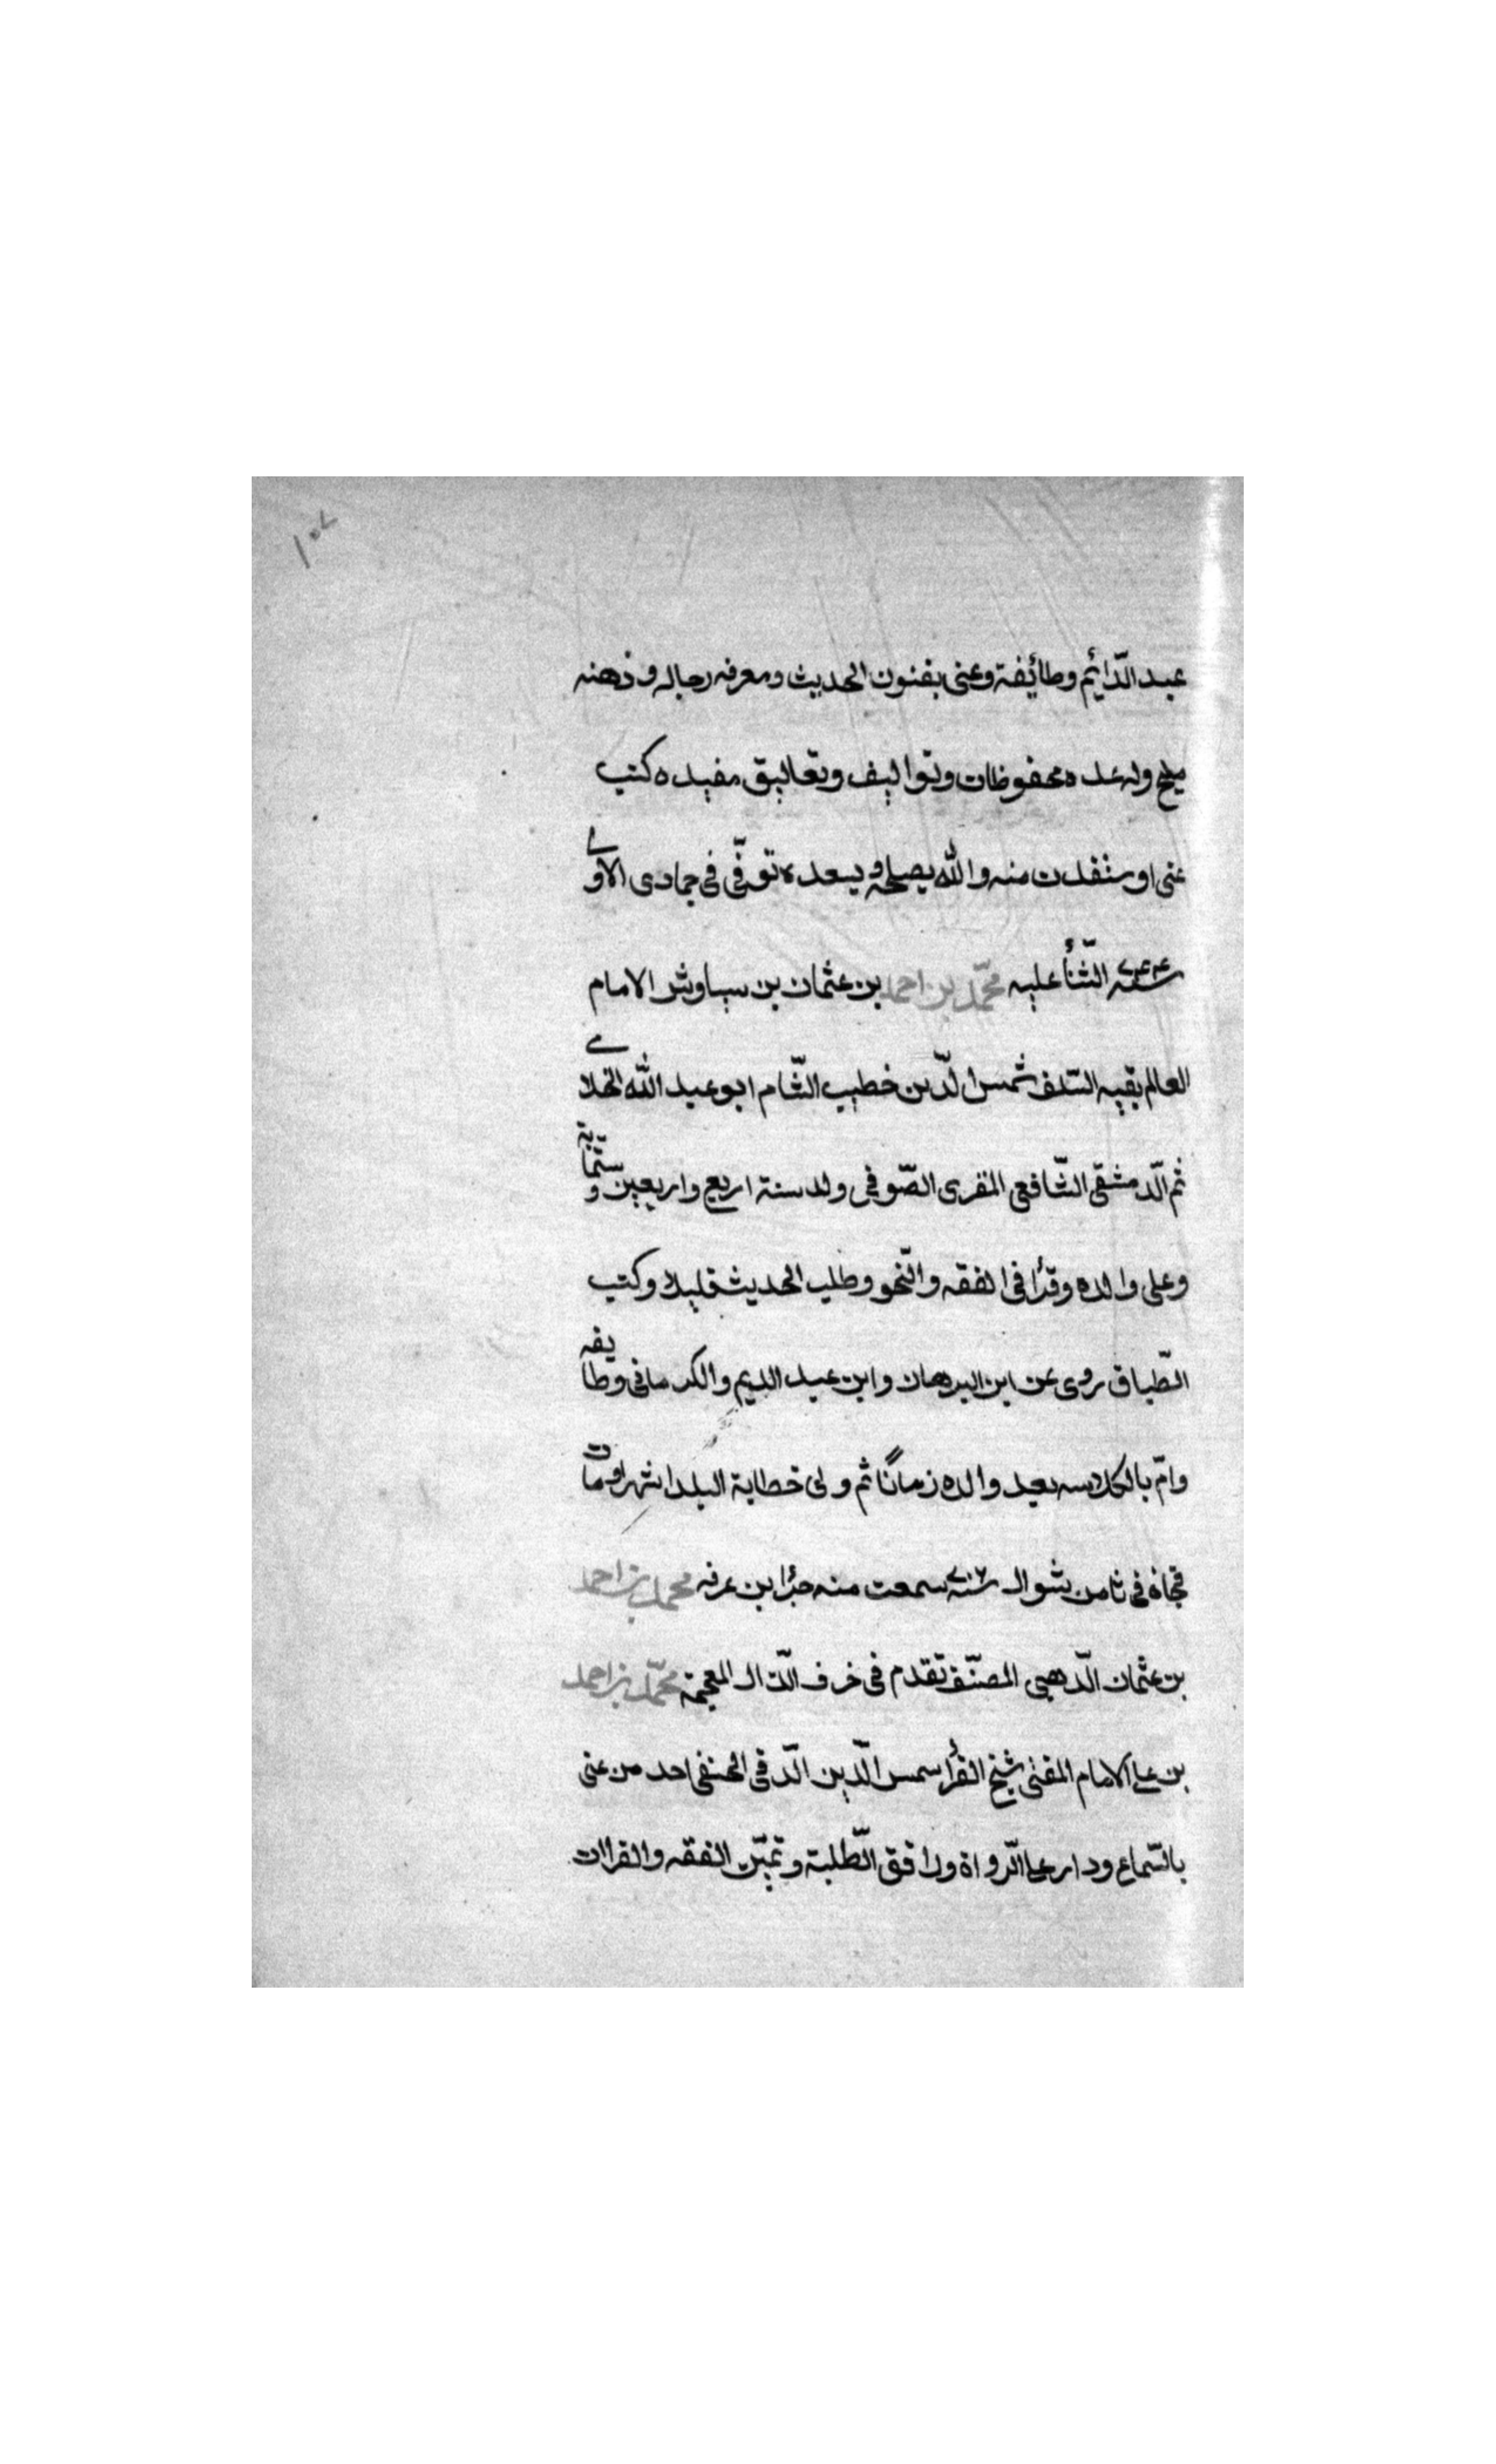 ١٠٧
عبد الدّائم وطائفة وعنى بفنون الحديث ومعرفه رجاله وذهنه
مليح وله عده محفوظات وتواليف وتعاليق مفيده كتب
عنى او ستفدت منه والله يصلحه ويسعده توفّى فى جمادى الاولے
سنة ٧٤٤ الثّنأ عليه محمّد بن احمد بن عثمان بن سياوش الامام
العالم بقيه السّلف شمس الدّين خطيب الشّام ابو عبد الله الخلاے
ثم الّدمشقى الشّافعى المقرى الصّوفى ولد سنة اربع واربعين وستّماية
وعلى والده وقرأ فى الفقه والنّحو وطلب الحديث قليلا وكتب
الطّباق روى عن ابن البرهان وابن عبد الديم والكرمانى وطايفه
وامّ بالكلاسه بعيد والده زمانًا ثم ولى خطابة البلد اشهرا ومات
فجاة فى ثامن شوال سنة ٧٠٦ سمعت منه جزأ ابن عرفه محمد بن احمد
بن عثمان الّدهبى المصنّف تقدم فى خرف الّدال المعجمة محمّد بن احمد
بن على الامام المفتى شيخ القرأ سمس الّدين الّدقى الحنفى احد من عنى
بالسّماع ودار على الّرواة ورافق الّطلبة وتميّز الفقه والقراات